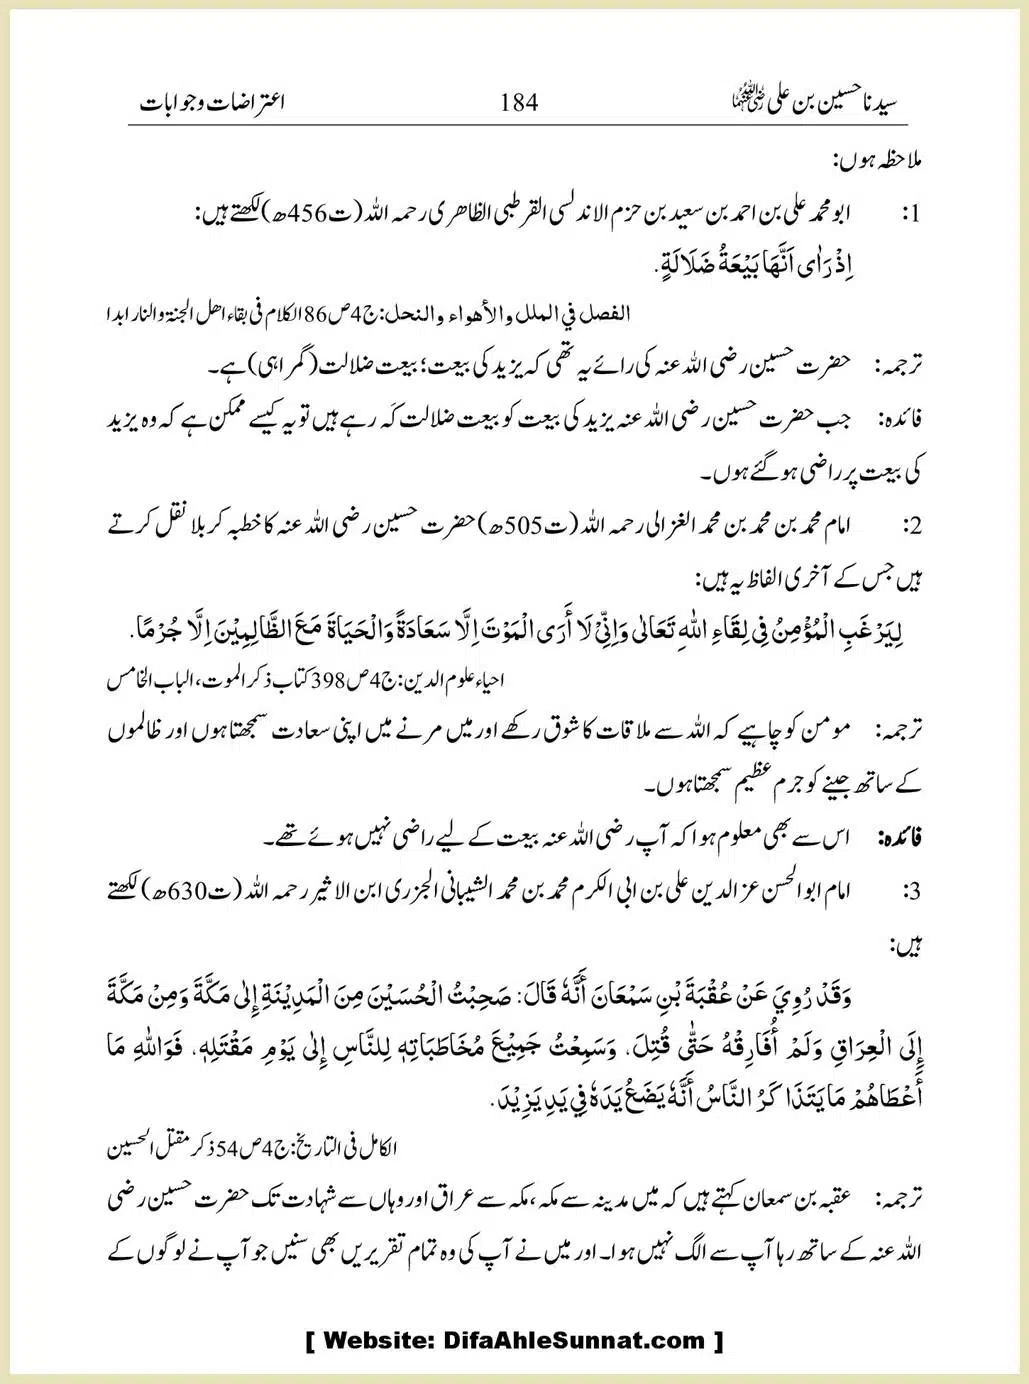 سیدنا حسین بن علی رضی اللہ عنہما 184 اعتراضات و جوابات
ملاحظہ ہوں:
1: ابو محمد علی بن احمد بن سعید بن حزم الاندلسی القرطبی الظاھری رحمہ اللہ (ت456ھ) لکھتے ہیں:
اِذْ رَاٰى اَنَّهَا بَيْعَةُ ضَلَالَةٍ.
الفصل في الملل والأهواء والنحل: ج4 ص86 الکلام فی بقاء اھل الجنۃ والنار ابدا
ترجمہ: حضرت حسین رضی اللہ عنہ کی رائے یہ تھی کہ یزید کی بیعت؛ بیعت ضلالت (گمراہی) ہے۔
فائدہ: جب حضرت حسین رضی اللہ عنہ یزید کی بیعت کو بیعت ضلالت کَہ رہے ہیں تو یہ کیسے ممکن ہے کہ وہ یزید
کی بیعت پر راضی ہو گئے ہوں۔
2: امام محمد بن محمد بن محمد الغزالی رحمہ اللہ (ت505ھ) حضرت حسین رضی اللہ عنہ کا خطبہ کربلا نقل کرتے
ہیں جس کے آخری الفاظ یہ ہیں:
لِيَرْغَبِ الْمُؤْمِنُ فِي لِقَاءِ اللهِ تَعَالٰى وَاِنِّيْ لَا أَرَى الْمَوْتَ اِلَّا سَعَادَةً وَالْحَيَاةَ مَعَ الظَّالِمِيْنَ اِلَّا جُرْمًا.
احیاء علوم الدین: ج4 ص398 کتاب ذکر الموت، الباب الخامس
ترجمہ: مومن کو چاہیے کہ اللہ سے ملاقات کا شوق رکھے اور میں مرنے میں اپنی سعادت سمجھتا ہوں اور ظالموں
کے ساتھ جینے کو جرم عظیم سمجھتا ہوں۔
فائدہ: اس سے بھی معلوم ہوا کہ آپ رضی اللہ عنہ بیعت کے لیے راضی نہیں ہوئے تھے۔
3: امام ابو الحسن عز الدین علی بن ابی الکرم محمد بن محمد الشیبانی الجزری ابن الاثیر رحمہ اللہ (ت630ھ) لکھتے
ہیں:
وَقَدْ رُوِيَ عَنْ عُقْبَةَ بْنِ سَمْعَانَ أَنَّهٗ قَالَ: صَحِبْتُ الْحُسَيْنَ مِنَ الْمَدِيْنَةِ إِلٰى مَكَّةَ وَمِنْ مَكَّةَ
إِلَى الْعِرَاقِ وَلَمْ أُفَارِقْهُ حَتّٰى قُتِلَ، وَسَمِعْتُ جَمِيْعَ مُخَاطَبَاتِهٖ لِلنَّاسِ إِلٰى يَوْمِ مَقْتَلِهٖ، فَوَاللهِ مَا
أَعْطَاهُمْ مَا يَتَذَاكَرُ النَّاسُ أَنَّهٗ يَضَعُ يَدَهٗ فِي يَدِ يَزِيْدَ.
الکامل فی التاریخ: ج4 ص54 ذکر مقتل الحسین
ترجمہ: عقبہ بن سمعان کہتے ہیں کہ میں مدینہ سے مکہ، مکہ سے عراق اور وہاں سے شہادت تک حضرت حسین رضی
اللہ عنہ کے ساتھ رہا آپ سے الگ نہیں ہوا۔ اور میں نے آپ کی وہ تمام تقریریں بھی سنیں جو آپ نے لوگوں کے
[ Website: DifaAhleSunnat.com ]